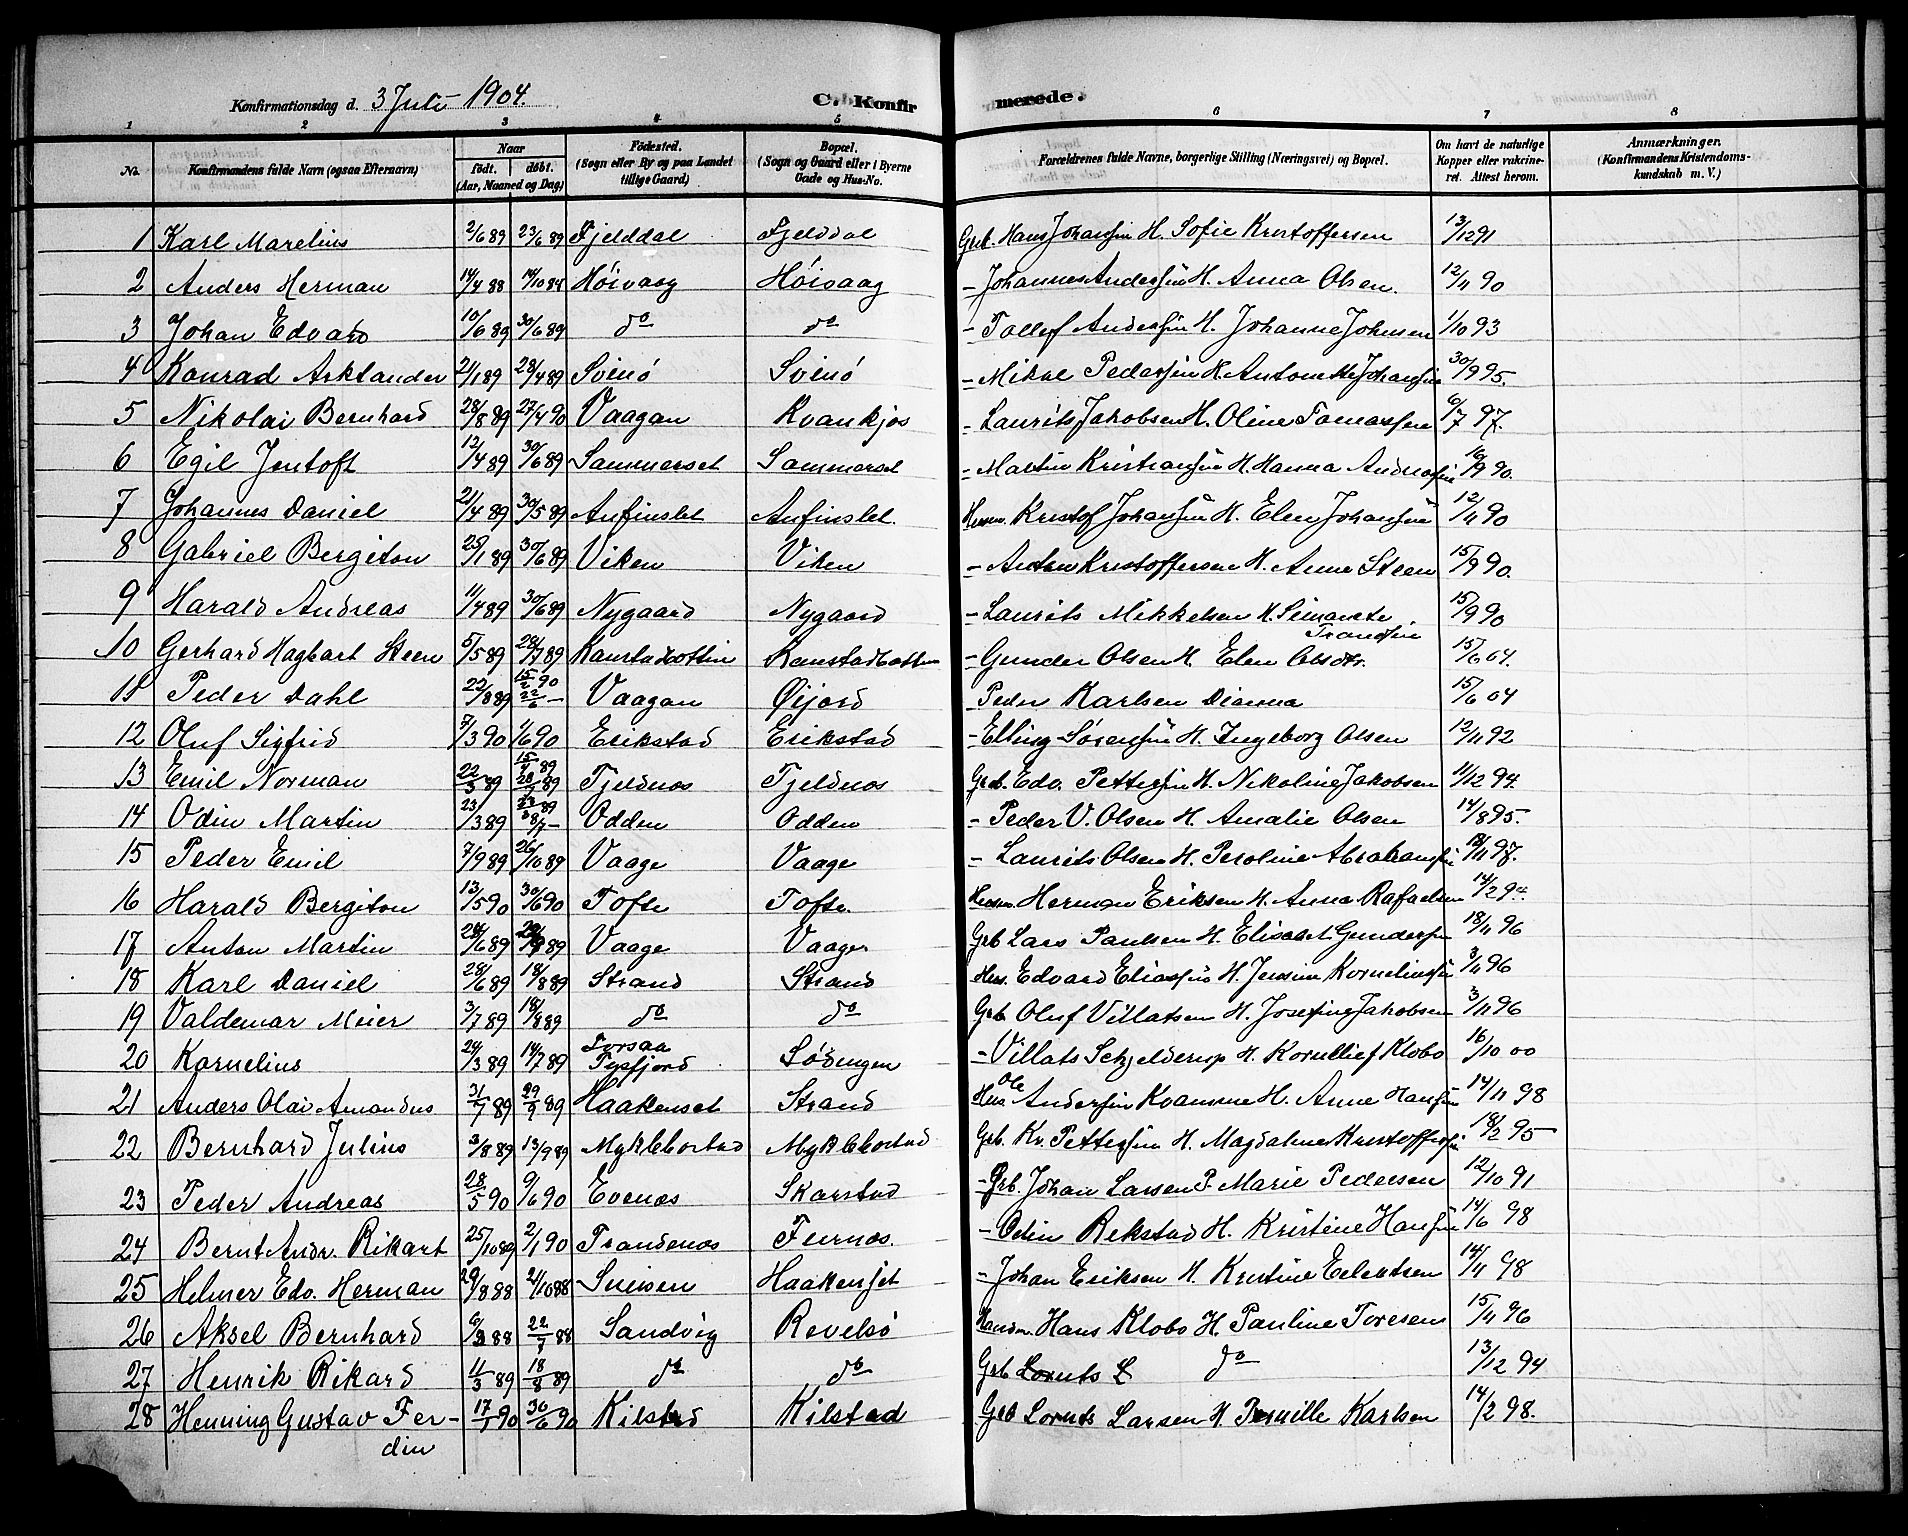 Konfirmationsdag d. 3 Juli 1904.
C. Konfirmerede.
1 2 3 4 5 6 7 8
No. Konfirmandens fulde Navn (ogsaa Efternavn) Naar født. døbt. (Aar, Maaned og Dag) Fødested. (Sogn eller By og paa Landet tillige Gaard) Bopæl. (Sogn og Gaard eller i Byerne Gade og Hus-No. Forældrenes fulde Navne, borgerlige Stilling (Næringsvei) og Bopæl. Om havt de naturlige Kopper eller vakcineret. Attest herom. Anmærkninger. (Konfirmandens Kristendomskundskab m. V.)
1 Karl Marelius 2/6 89 23/6 89 Fjelddal Fjelddal Grb. Hans Johansen H. Sofie Kristoffersen 13/12 91
2 Anders Herman 14/4 88 Høivaag Høivaag - Johannes Andersen H. Anna Olsen. 12/11 90
3 Johan Edvard 10/6 89 30/6 89 do do - Tollef Andersen H. Johanne Johnsen 1/10 93
4 Konrad Arktander 21/1 89 28/4 89 Svinø Svinø - Mikal Pedersen H. Antonette Johansen 30/9 95.
5 Nikolai Bernhard 28/8 89 27/4 90 Vaagan Kvankjos - Laurits Jakobsen H. Oline Tomassen 6/7 97.
6 Egil Jentoft 12/4 89 30/6 89 Sammerset Sommerset - Martin Kristiansen H. Hanna Andreasen 90.
7 Johannes Daniel 21/4 89 30/5 89 Anfinslet Anfinslet. Husm. Kristof Johansen H. Elen Johansen 12/11 90
8 Gabriel Bergiton 25/1 89 30/6 89 Viken Viken - Anton Kristoffersen H. Anna Steen 15/9 90.
9 Harald Andreas 11/4 89 30/6 89 Nygaard Nygaard - Laurits Mikkelsen H. 15/9 90
10 Gerhard Hagbart Steen 5/5 89 28/7 89 Kanstadbotten Kanstadbotten - Gunder Olsen H. Elen Olsdtr. 15/6 04.
11 Peder Dahl 22/8 89 15/2 90 22/6 - Vaagan Øijord - Peder Karlsen Dianna 15/6 04
12 Oluf Sigfrid 7/3 90 1/6 90 Erikstad Erikstad - Elling Sørensen H. Ingeborg Olsen 12/11 92
13 Emil Norman 22/3 89 15/4 89 Fjeldnes Fjeldnes Grb. Edv. Pettersen H. Nikoline Jakobsen 11/12 94.
14 Odin Martin 23/3 89 Odden Odden - Peder V. Olsen H. Amalie Olsen 14/8 95.
15 Peder Emil 7/9 89 26/10 89 Vaage Vaage - Laurits Olsen H. Peroline Abrahamsen 97.
16 Harald Bergiton 13/5 90 30/6 90 Tofte Tofte. Husm. Herman Eriksen H. Anna Rafaelsen 14/2 94
17 Anton Martin 24/6 89 Vaage Vaage Grb Lars Paulsen H. Elisabet Gundersen 18/11 96
18 Karl Daniel 28/6 89 18/8 89 Strand Strand Hus. Edvard Eliassen H. Jensine Korneliussen 3/11 96
19 Valdemar Meier 3/7 89 18/8 89 do do Grb Oluf Villatsen H. Josefine Jakobsen 3/11 96
20 Kornelius 24/3 89 14/7 89 Korsaa Tysfjord Lødingen - Villats Schjelderup H. Klobo 16/10 00
21 Anders Olai Amandus 31/7 89 29/9 89 Haakenset Strand Hus. Ole Andersen Kvamme H. Anne Hansen 14/11 98
22 Bernhard Julius 3/8 89 13/9 89 Myklebostad Myklebostad Grb. Kr. Pettersen H. Magdalene Kristoffersen 95
23 Peder Andreas 28/5 90 9/6 90 Evenes Skarstad - Grb. Johan Larsen P. Marie Pedersen 12/10 91
24 Bernt Andr. Rikart 25/10 89 2/1 90 Trandenes Furnes. - Odin Rekstad H. Kristine Hansen 14/6 98
25 Helmer Edv. Herman 29/8 88 21/10 88 Haakenset - Johan Eriksen H. Kristine 14/11 98
26 Aksel Bernhard 88 88 Sandvig Revelsø Hans Klobo H. Pauline Toresen 15/11 96
27 Henrik Rikard 11/3 89 18/8 89 do do Grb Lornts L do 13/12 94
28 Henning Gustav Ferdin 17/1 90 30/6 90 Kilstad Kilstad Grb Lornts Larsen H. Pernille Karlsen 14/2 98.